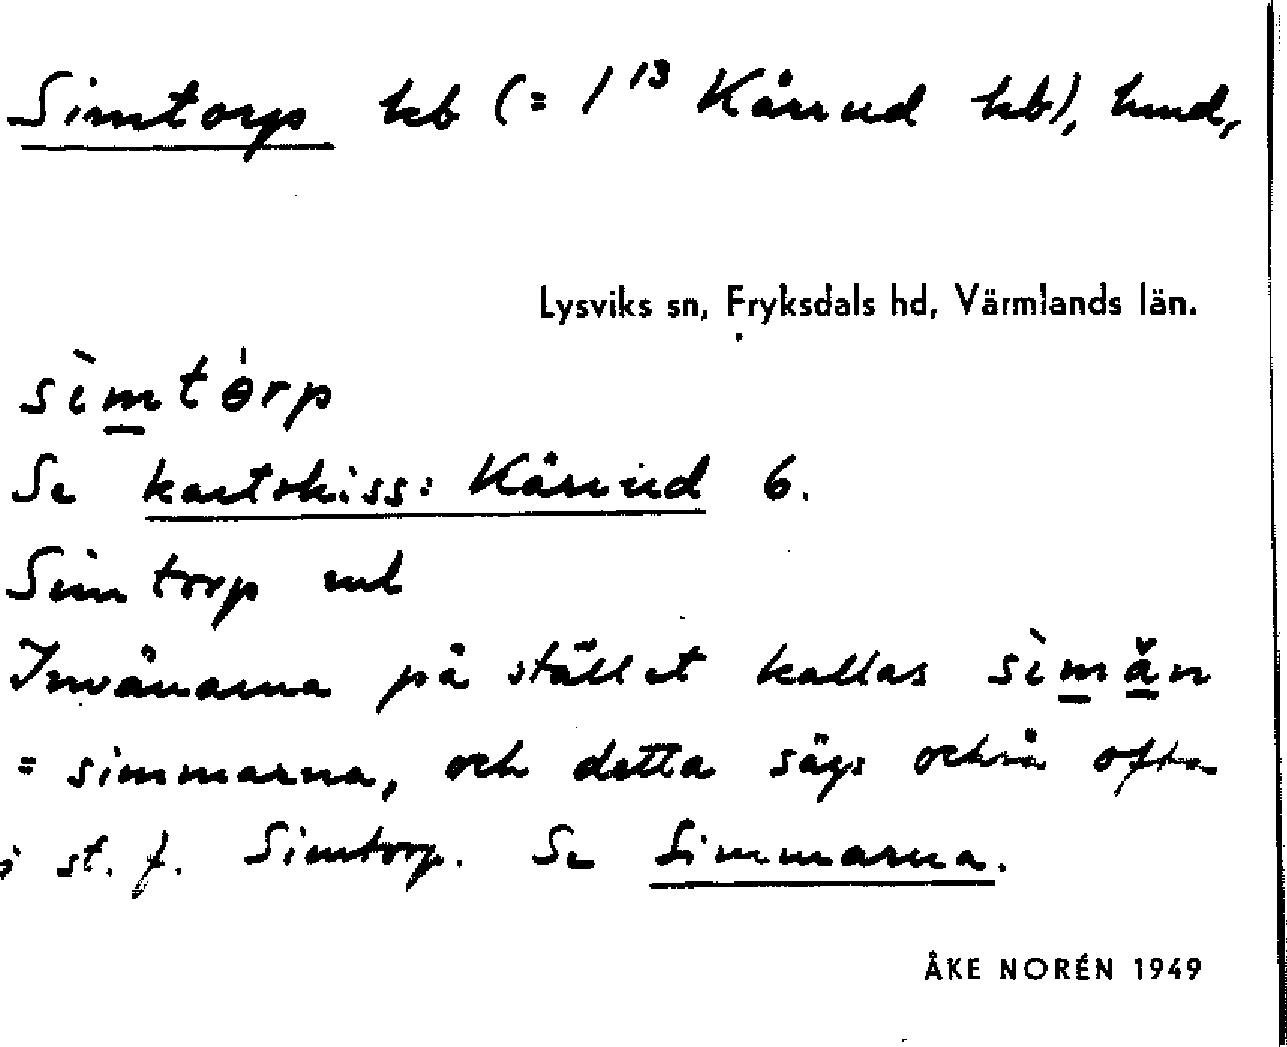 Simtorp hb (= 1¹³ Kårrud hb), hmd,
Lysviks sn, Fryksdals hd, Värmlands län.
sìmtòrp
Se kartskiss: Kårrud 6.
Simtorp
Invånarna på stället kallas sìmän
= simmarna, och detta säges också ofta
i st. f. Simtorp. Se Simmarna.
ÅKE NORÉN 1949